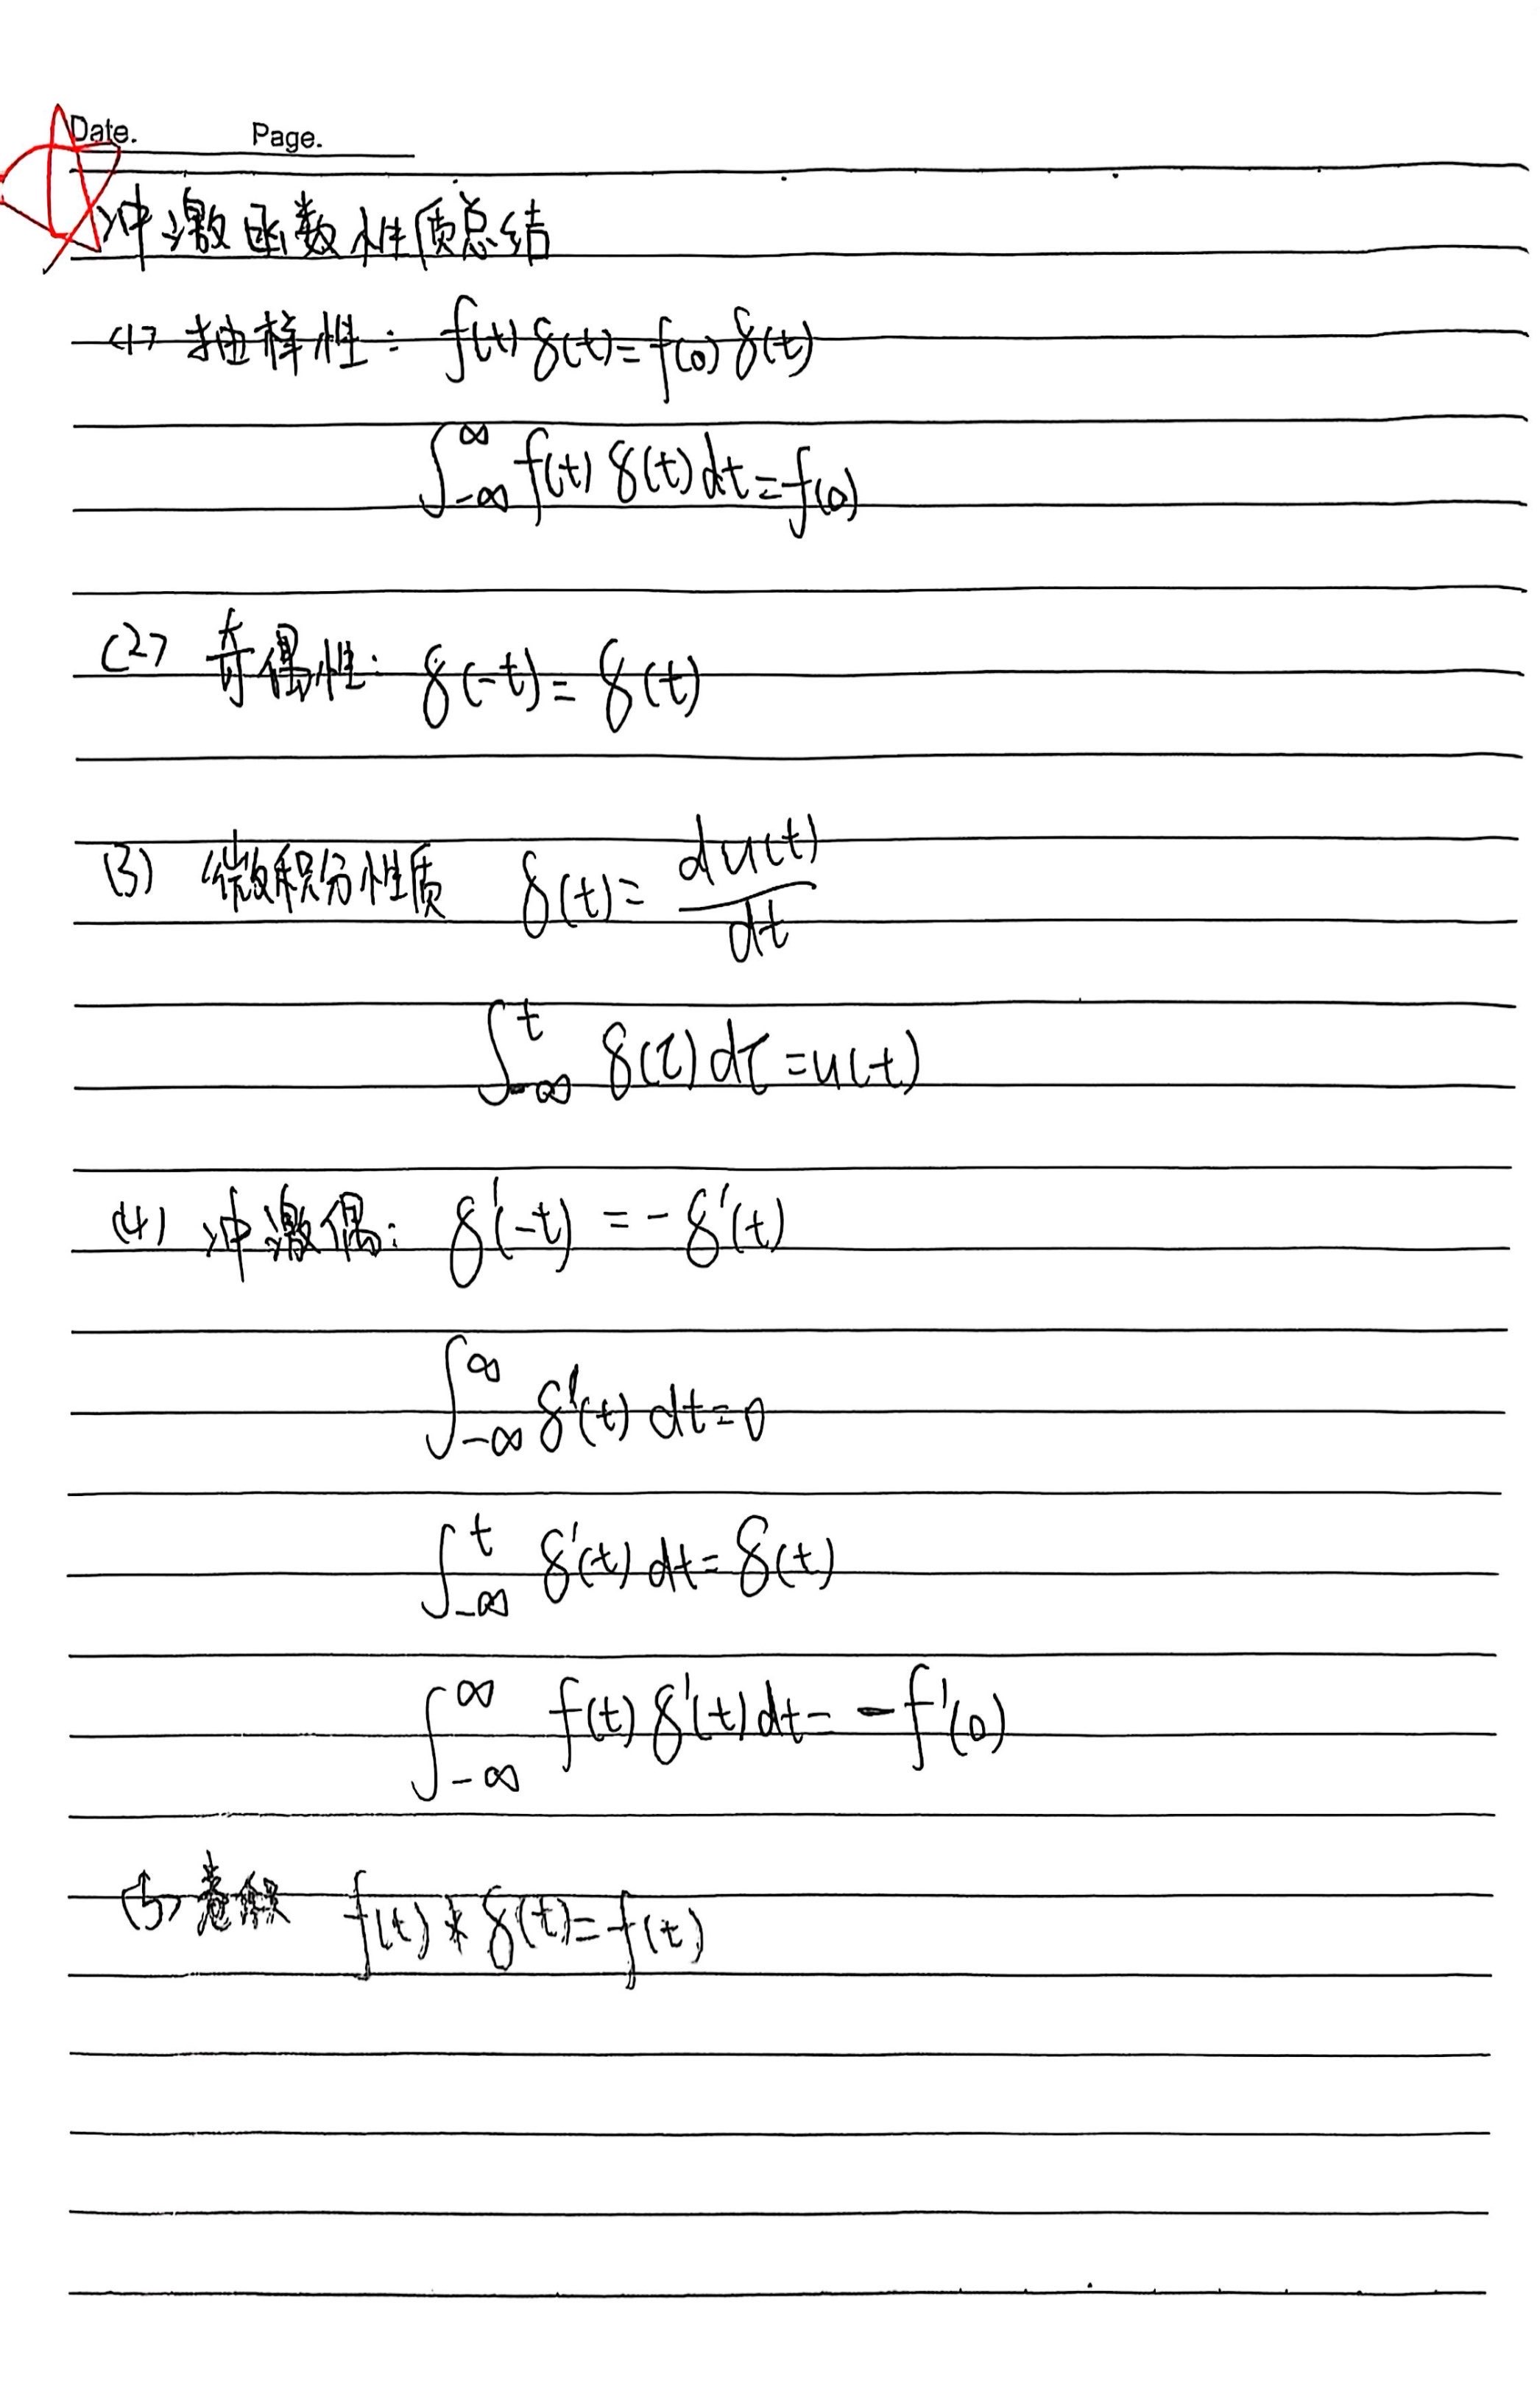 Date. Page.
冲激函数性质总结
(1) 抽样性: f(t)δ(t)=f(0)δ(t)
∫_{-∞}^{∞} f(t)δ(t)dt=f(0)
(2) 奇偶性: δ(-t)=δ(t)
(3) 微积分性质 δ(t)=du(t)/dt
∫_{-∞}^{t} δ(τ)dτ=u(t)
(4) 冲激偶: δ'(-t)=-δ'(t)
∫_{-∞}^{∞} δ'(t)dt=0
∫_{-∞}^{t} δ'(t)dt=δ(t)
∫_{-∞}^{∞} f(t)δ'(t)dt=-f'(0)
(5) 卷积 f(t)*δ(t)=f(t)